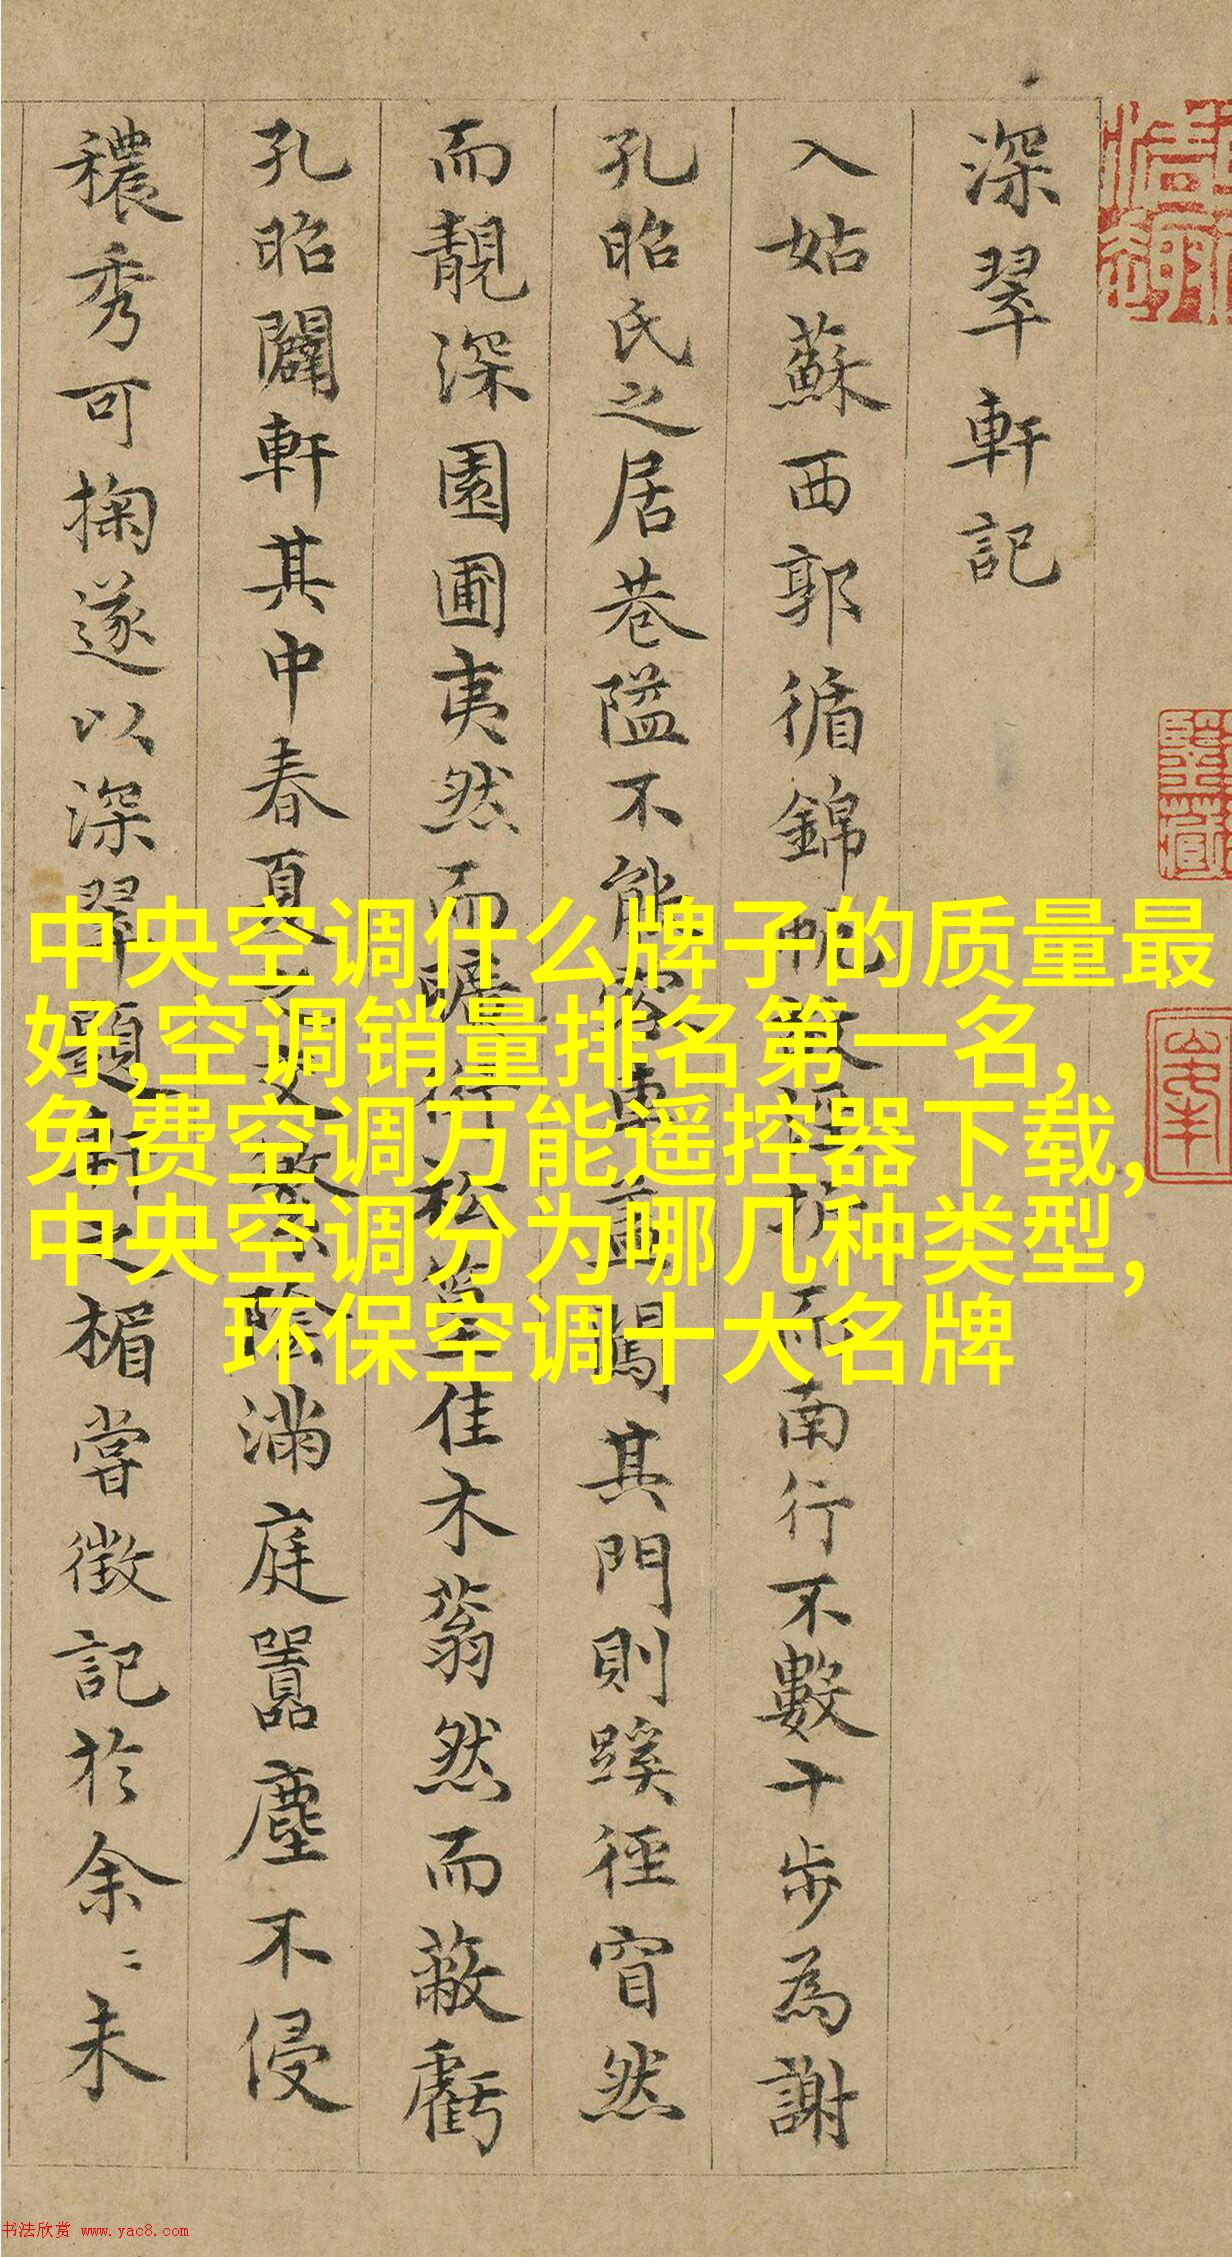 深翠軒記
入姑蘇西郭循錦帆
折而南行不數十步為謝
孔昭氏之居巷隘不能容車
其門則蹊徑窅然
而靚深園圃夷然而曠
佳木蓊然而蔽虧
孔昭闢軒其中春夏之交
陰滿庭囂塵不侵
穠秀可掬遂以深翠題軒之楣嘗徵記於余〻未
中央空调什么牌子的质量最
好,空调销量排名第一名,
免费空调万能遥控器下载,
中央空调分为哪几种类型,
环保空调十大名牌
书法欣赏 www.yac8.com